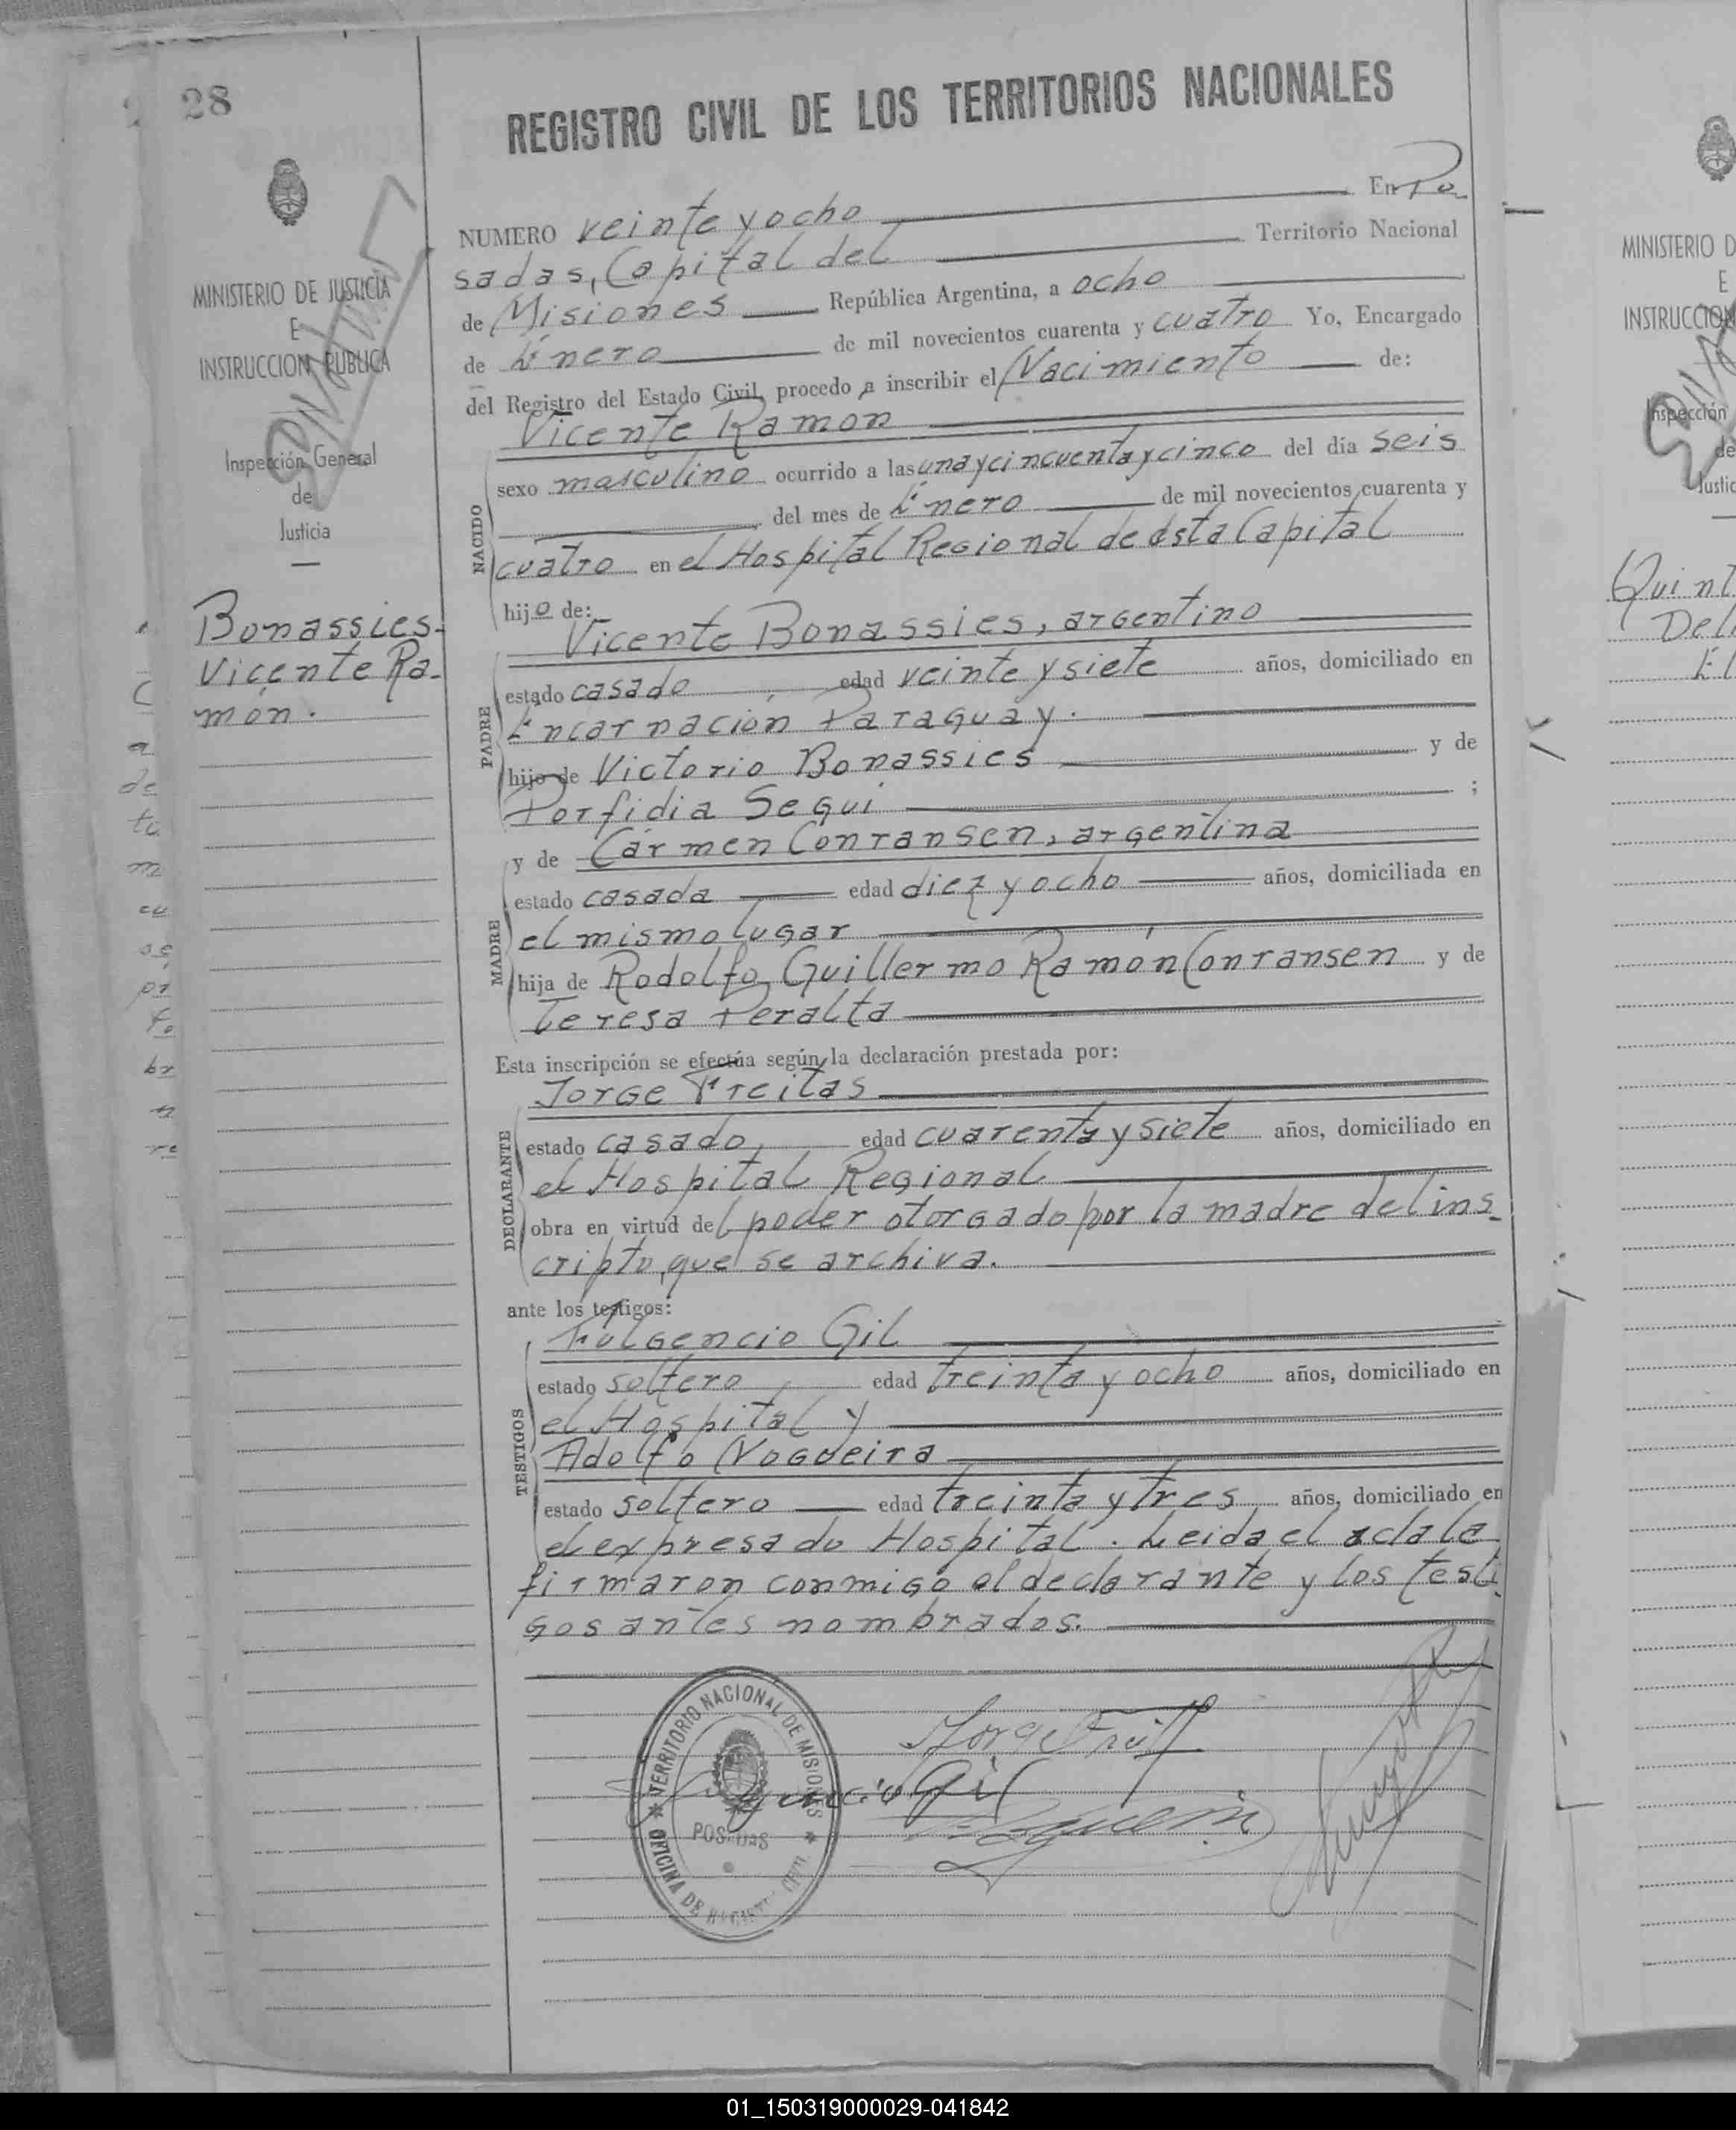 28
REGISTRO CIVIL DE LOS TERRITORIOS NACIONALES
MINISTERIO DE JUSTICIA
E
INSTRUCCION PUBLICA
Inspección General
de
Justicia
Bonassies-
Vicente Ra-
món.
NUMERO veinte y ocho En Po
sadas, Capital del Territorio Nacional
de Misiones República Argentina, a ocho
de Enero de mil novecientos cuarenta y cuatro Yo, Encargado
del Registro del Estado Civil, procedo a inscribir el Nacimiento de:
Vicente Ramon
NACIDO
sexo masculino ocurrido a las una y cincuenta y cinco del día seis
del mes de Enero de mil novecientos cuarenta y
cuatro en el Hospital Regional de esta Capital
hijo de:
Vicente Bonassies, argentino
PADRE
estado casado edad veinte y siete años, domiciliado en
Encarnación Paraguay.
hijo de Victorio Bonassies y de
Porfidia Segui ;
y de Cármen Conransen, argentina
MADRE
estado casada edad diez y ocho años, domiciliada en
el mismo lugar
hija de Rodolfo Guillermo Ramón Conransen y de
Teresa Peralta
Esta inscripción se efectúa según la declaración prestada por:
Jorge Freitas
DECLARANTE
estado casado edad cuarenta y siete años, domiciliado en
el Hospital Regional
obra en virtud del poder otorgado por la madre del ins-
cripto, que se archiva.
ante los testigos:
Fulgencio Gil
TESTIGOS
estado soltero edad treinta y ocho años, domiciliado en
el Hospital y
Adolfo Nogueira
estado soltero edad treinta y tres años, domiciliado en
el expresado Hospital. Leida el acta la
firmaron conmigo el declarante y los testi-
gos antes nombrados.
TERRITORIO NACIONAL DE MISIONES
POSADAS
OFICINA DE REGISTRO CIVIL
Gil
MINISTERIO D
E
INSTRUCCION
Inspección
de
Justic
Quint
Del
El
01_150319000029-041842